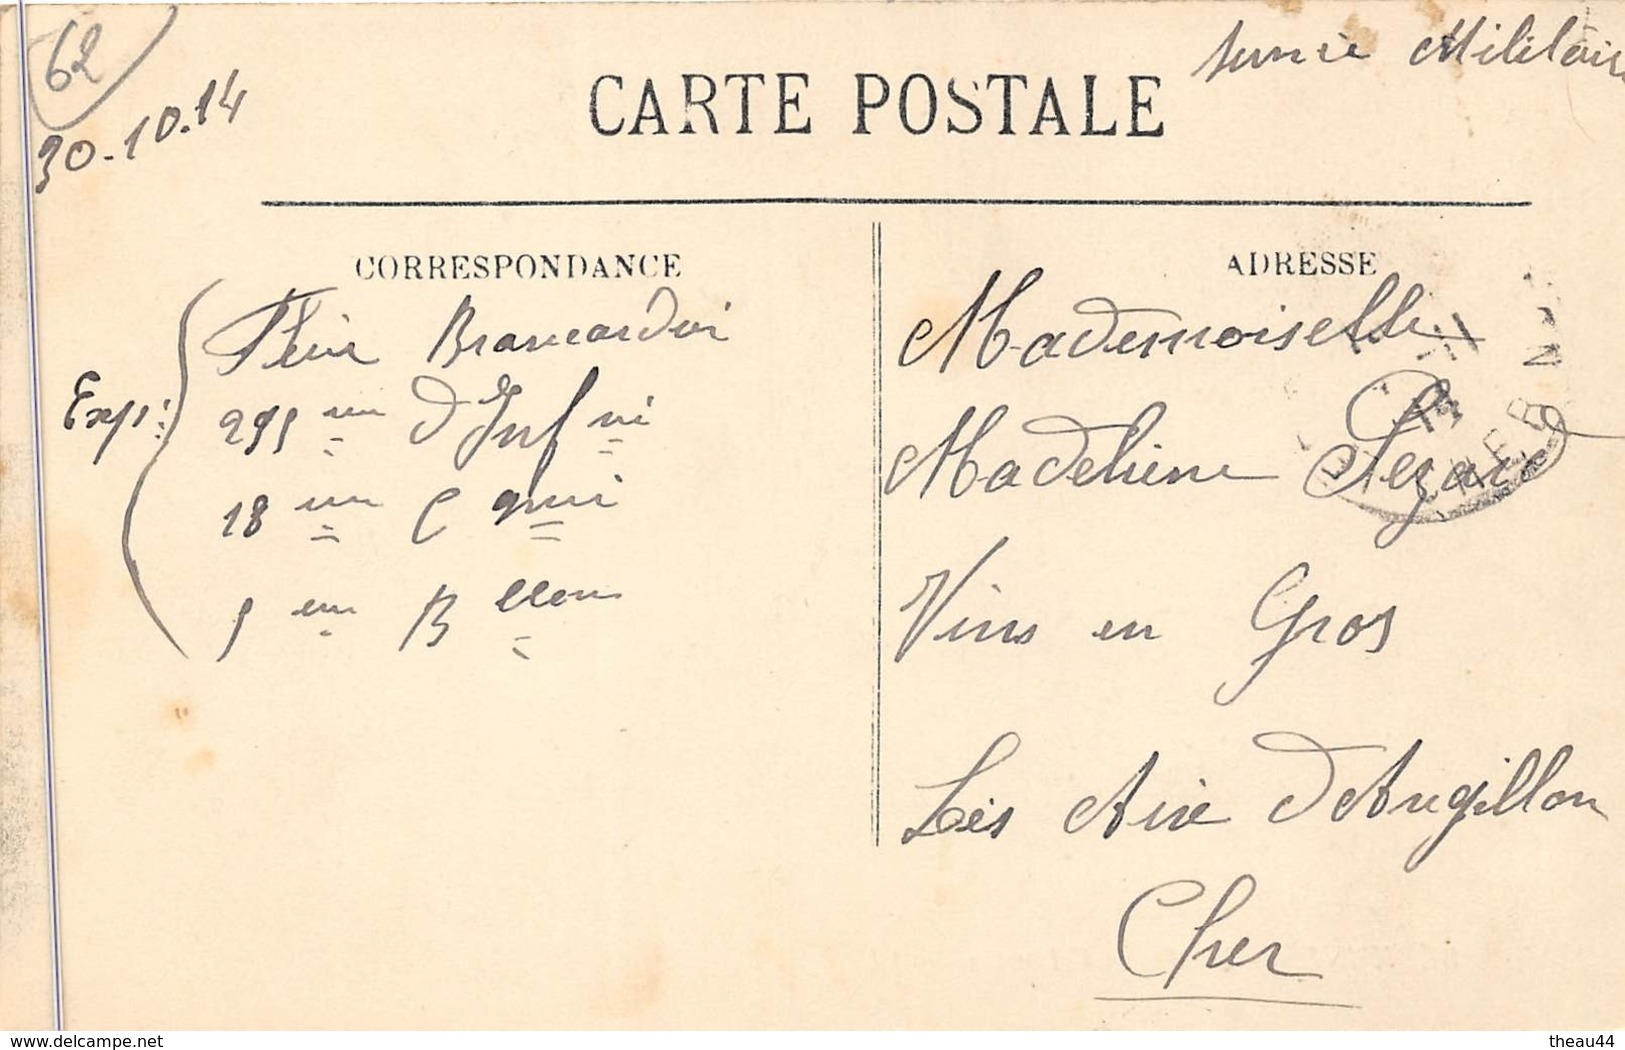 62
30-10.14
Service Militaire
CARTE POSTALE
CORRESPONDANCE
ADRESSE
Exp:
Brancardier
295 em d'Inf rie
18 em C gnie
5 em B llon
Mademoiselle
Madeleine
Vins en Gros
Les Aix d'Angillon
Cher
www.delcampe.net
theau44